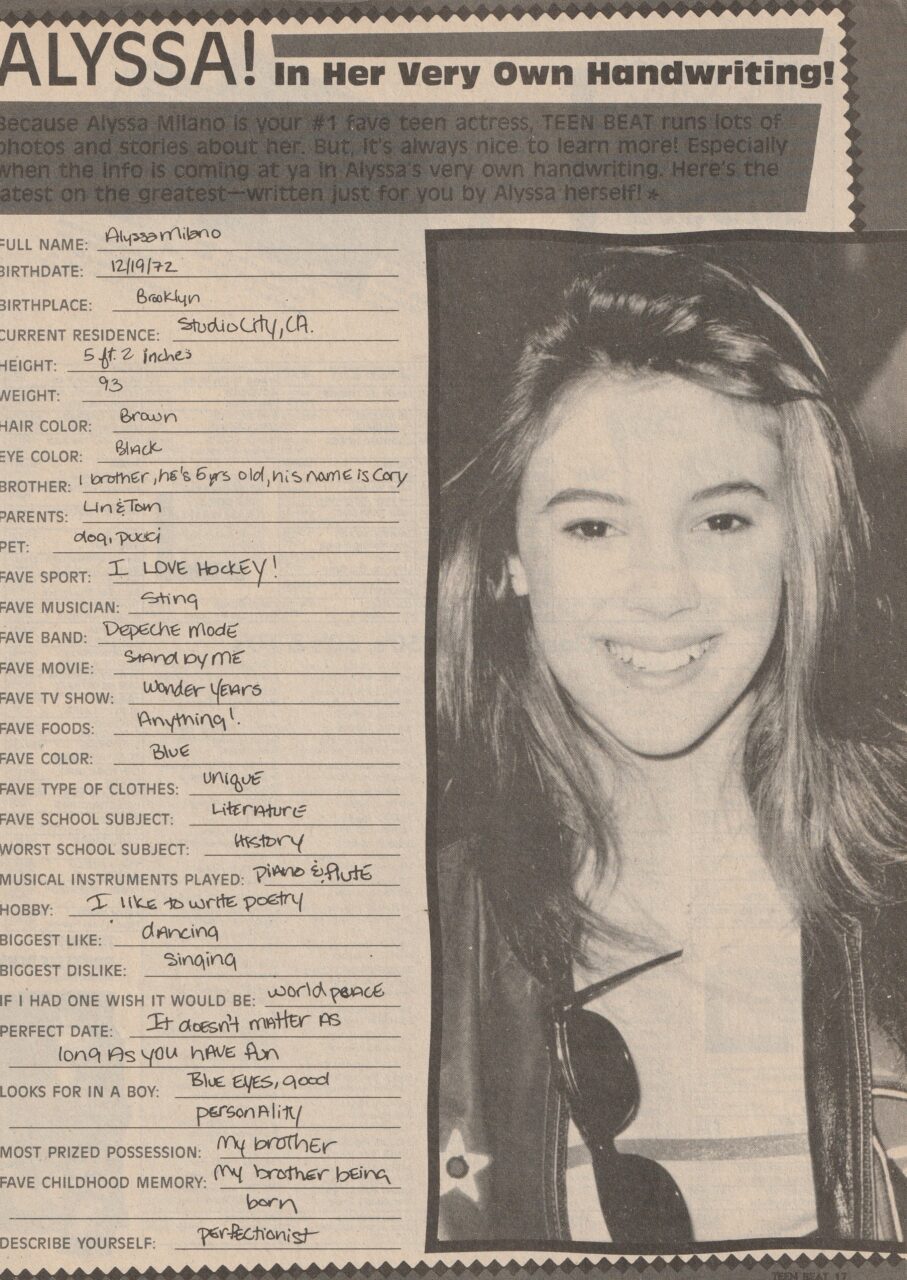 ALYSSA! In Her Very Own Handwriting!
Because Alyssa Milano is your #1 fave teen actress, TEEN BEAT runs lots of
photos and stories about her. But, it's always nice to learn more! Especially
when the info is coming at ya in Alyssa's very own handwriting. Here's the
latest on the greatest—written just for you by Alyssa herself! *
FULL NAME: Alyssa Milano
BIRTHDATE: 12/19/72
BIRTHPLACE: Brooklyn
CURRENT RESIDENCE: Studio City, CA.
HEIGHT: 5 ft. 2 inches
WEIGHT: 93
HAIR COLOR: Brown
EYE COLOR: Black
BROTHER: 1 brother, he's 5 yrs old, his name is Cory
PARENTS: Lin & Tom
PET: dog, pucci
FAVE SPORT: I LOVE HOCKEY!
FAVE MUSICIAN: Sting
FAVE BAND: Depeche Mode
FAVE MOVIE: Stand by ME
FAVE TV SHOW: Wonder Years
FAVE FOODS: Anything!
FAVE COLOR: Blue
FAVE TYPE OF CLOTHES: unique
FAVE SCHOOL SUBJECT: Literature
WORST SCHOOL SUBJECT: History
MUSICAL INSTRUMENTS PLAYED: piano & flute
HOBBY: I like to write poetry
BIGGEST LIKE: dancing
BIGGEST DISLIKE: Singing
IF I HAD ONE WISH IT WOULD BE: world peace
PERFECT DATE: It doesn't matter as
long as you have fun
LOOKS FOR IN A BOY: Blue eyes, good
personality
MOST PRIZED POSSESSION: My brother
FAVE CHILDHOOD MEMORY: My brother being
born
DESCRIBE YOURSELF: perfectionist